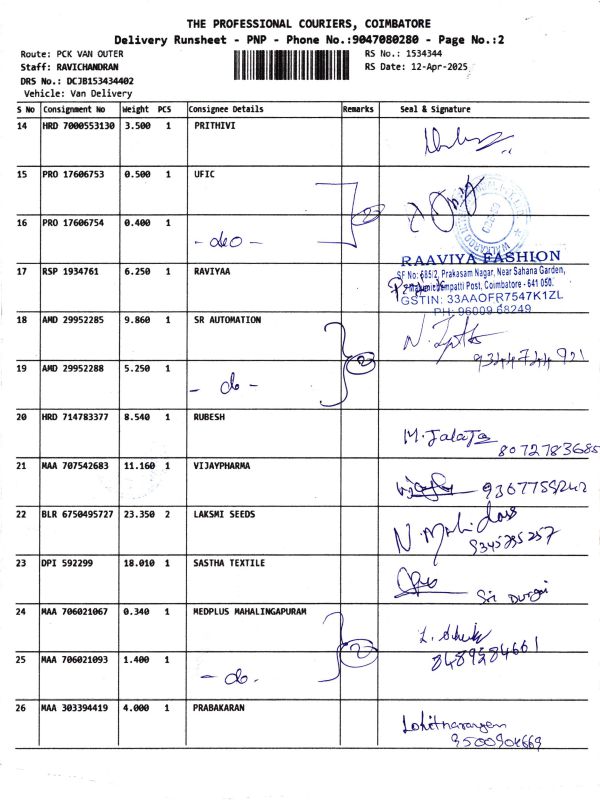 THE PROFESSIONAL COURIERS, COIMBATORE
Delivery Runsheet - PNP - Phone No.:9047080280 - Page No.:2
Route: PCK VAN OUTER
RS No.: 1534344
Staff: RAVICHANDRAN
RS Date: 12-Apr-2025
DRS No.: DCJB153434402
Vehicle: Van Delivery
S No Consignment No Weight PCS Consignee Details Remarks Seal & Signature
14 HRD 7000553130 3.500 1 PRITHIVI
15 PRO 17606753 0.500 1 UFIC
2
16 PRO 17606754 0.400 1
- deo -
RAAVIYA FASHION
17 RSP 1934761 6.250 1 RAVIYAA
SF No: 585/2, Prakasam Nagar, Near Sahana Garden,
Post, Coimbatore - 641 050.
GSTIN: 33AAOFR7547K1ZL
PH: 96009 68249
18 AMD 29952285 9.860 1 SR AUTOMATION
9344744921
2
19 AMD 29952288 5.250 1
- do -
20 HRD 714783377 8.540 1 RUBESH
M. Jalaja
8072783685
21 MAA 707542683 11.160 1 VIJAYPHARMA
22 BLR 6750495727 23.350 2 LAKSMI SEEDS
23 DPI 592299 18.010 1 SASTHA TEXTILE
Sri Durgai
24 MAA 706021067 0.340 1 MEDPLUS MAHALINGAPURAM
8489284661
2
25 MAA 706021093 1.400 1
- do -
26 MAA 303394419 4.000 1 PRABAKARAN
9500904669